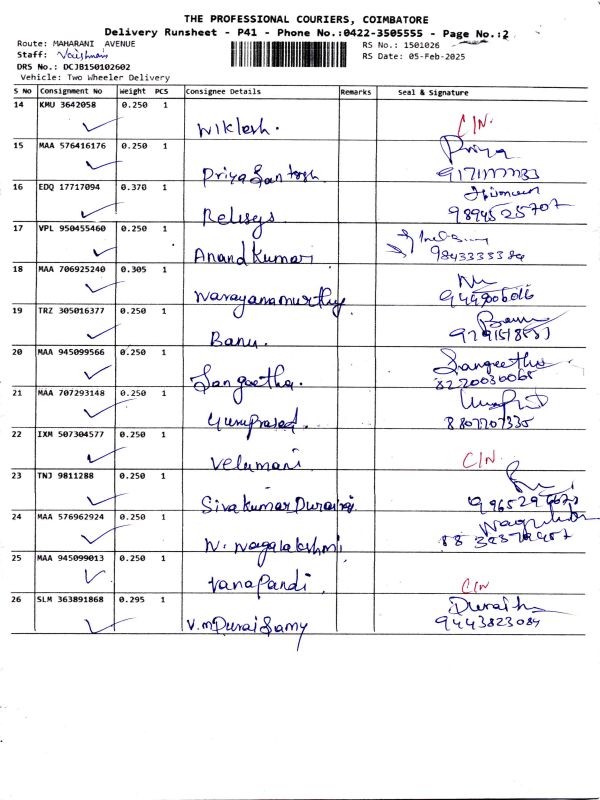 THE PROFESSIONAL COURIERS, COIMBATORE
Delivery Runsheet - P41 - Phone No.:0422-3505555 - Page No.:2
Route: MAHARANI AVENUE
RS No.: 1501026
Staff:
RS Date: 05-Feb-2025
DRS No.: DCJB150102602
Vehicle: Two Wheeler Delivery
S No Consignment No Weight PCS Consignee Details Remarks Seal & Signature
14 KMU 3642058 0.250 1
Wiklesh. C/N.
15 MAA 576416176 0.250 1
Priya Santosh Priya
16 EDQ 17717094 0.370 1
Relisys 9894525707
17 VPL 950455460 0.250 1
Anand Kumar 9843333384
18 MAA 706925240 0.305 1
Narayanamurthy
19 TRZ 305016377 0.250 1
Banu.
20 MAA 945099566 0.250 1
Sangeetha. Sangeetha
8220030068
21 MAA 707293148 0.250 1
Guruprasad. 8807707335
22 IXM 507304577 0.250 1
Velumani C/N.
23 TNJ 9811288 0.250 1
Sivakumar Durairaj
24 MAA 576962924 0.250 1
N. Nagalakshmi
25 MAA 945099013 0.250 1
Vanapandi. C/N
26 SLM 363891868 0.295 1
V.M Duraisamy 9443823084